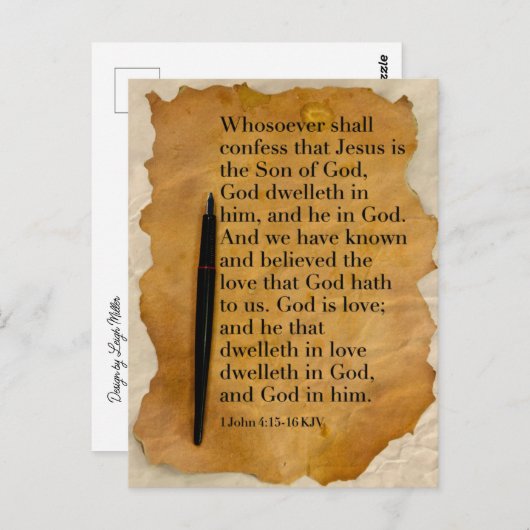 Whosoever shall
confess that Jesus is
the Son of God,
God dwelleth in
him, and he in God.
And we have known
and believed the
love that God hath
to us. God is love;
and he that
dwelleth in love
dwelleth in God,
and God in him.
1 John 4:15-16 KJV
Design by Leigh Miller